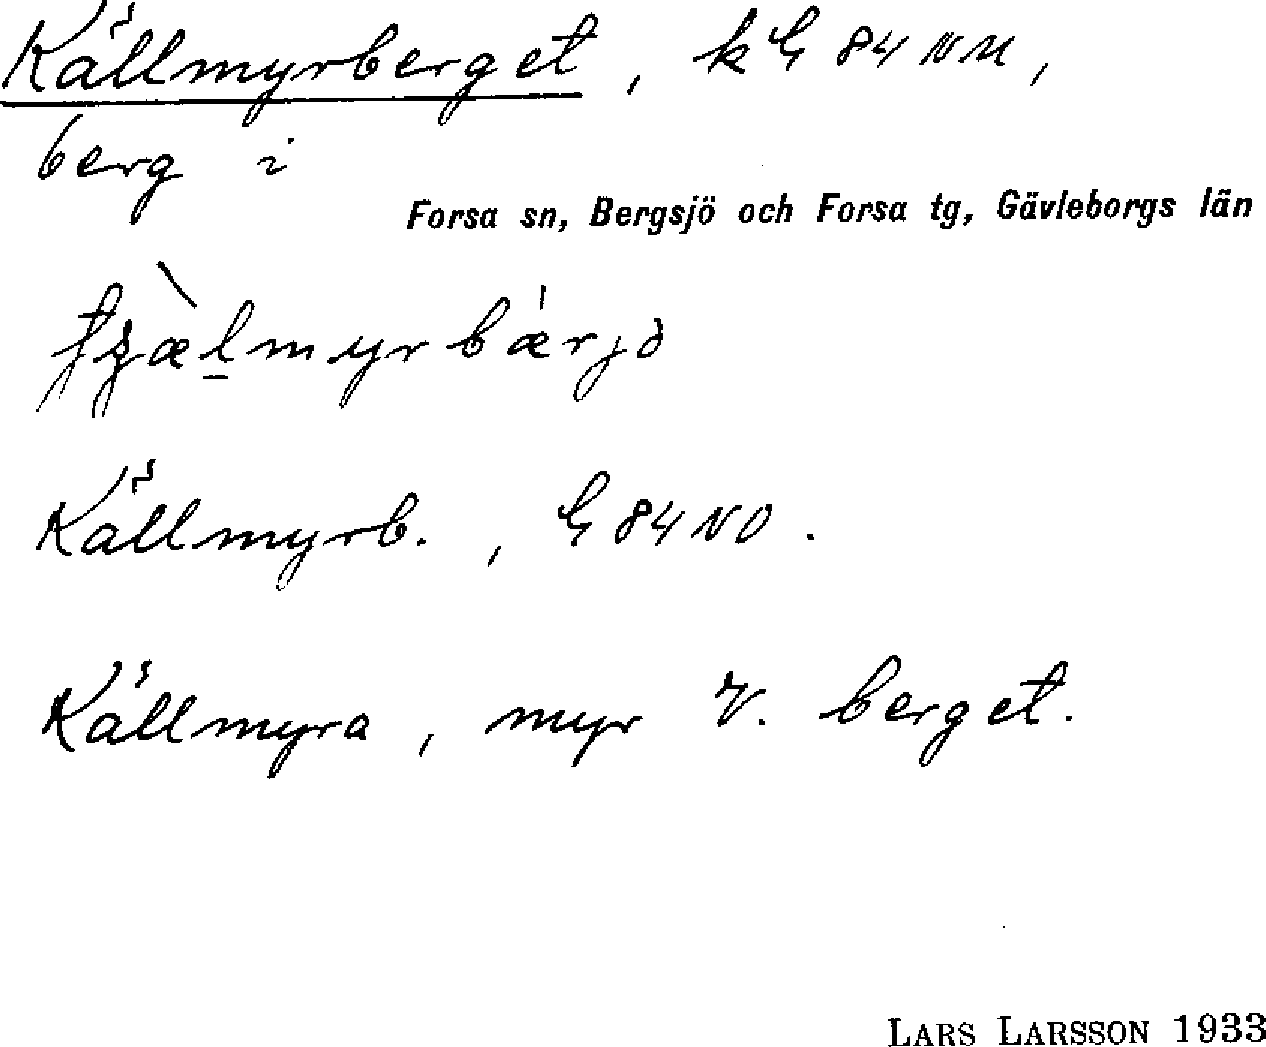 Källmyrberget, kG 84 NM,
berg i
Forsa sn, Bergsjö och Forsa tg, Gävleborgs län
Källmyrb., G 84 NO.
Källmyra, myr V. berget.
LARS LARSSON 1933